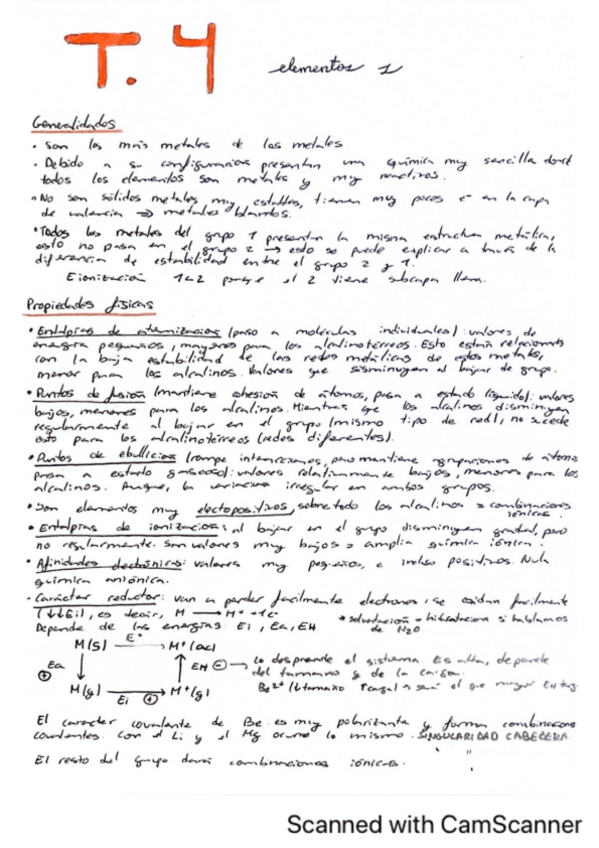 T. 4
elementos 1
Generalidades
• Son los más metales de los metales.
• Debido a su configuración presentan una química muy sencilla donde
todos los elementos son metales y muy reactivos.
• No son sólidos metales muy estables, tienen muy pocos e- en la capa
de valencia ⇒ metales blandos.
• Todos los metales del grupo 1 presentan la misma estructura metálica,
esto no pasa en el grupo 2 → esto se puede explicar a través de la
diferencia de estabilidad entre el grupo 2 y 1.
Eionización 1<2 porque el 2 tiene subcapa llena.
Propiedades físicas
• Entalpías de atomización (paso a moléculas individuales): valores de
energía pequeños, mayores para los alcalinotérreos. Esto están relacionados
con la baja estabilidad de las redes metálicas de estos metales,
menor para los alcalinos. Valores que disminuyen al bajar de grupo.
• Puntos de fusión (mantiene cohesión de átomos, pasa a estado líquido): valores
bajos, menores para los alcalinos. Mientras que los alcalinos disminuyen
regularmente al bajar en el grupo (mismo tipo de red), no sucede
esto para los alcalinotérreos (redes diferentes).
• Puntos de ebullición (rompe interacciones, pero mantiene agrupaciones de átomos
pasa a estado gaseoso): valores relativamente bajos, menores para los
alcalinos. Aunque, la variación irregular en ambos grupos.
• Son elementos muy electopositivos, sobre todo los alcalinos = combinaciones
iónicas.
• Entalpías de ionización: al bajar en el grupo disminuyen gradual, pero
no regularmente. Son valores muy bajos = amplia química iónica.
• Afinidades electrónicas: valores muy pequeños, e incluso positivos. Nula
química aniónica.
• Carácter reductor: van a perder facilmente electrones, se oxidan facilmente
(↓↓Ei), es decir, M → M+ + 1e-
* solvatación = hidratación si hablamos
de H2O
Depende de las energías: Ei, Ea, EH
M(s) E° → M+(ac)
Ea ⊕ ↑ EH ⊖ → Lo desprende el sistema. Es alta, depende
del tamaño y de la carga.
M(g) Ei ⊕ → M+(g) Be2+ (↓tamaño ↑carga) → será el que mayor EH tenga.
El caracter covalante de Be es muy polarizante y forma combinaciones
covalentes. Con el Li y el Mg ocurre lo mismo. SINGULARIDAD CABECERA.
El resto del grupo dará combinaciones iónicas.
Scanned with CamScanner